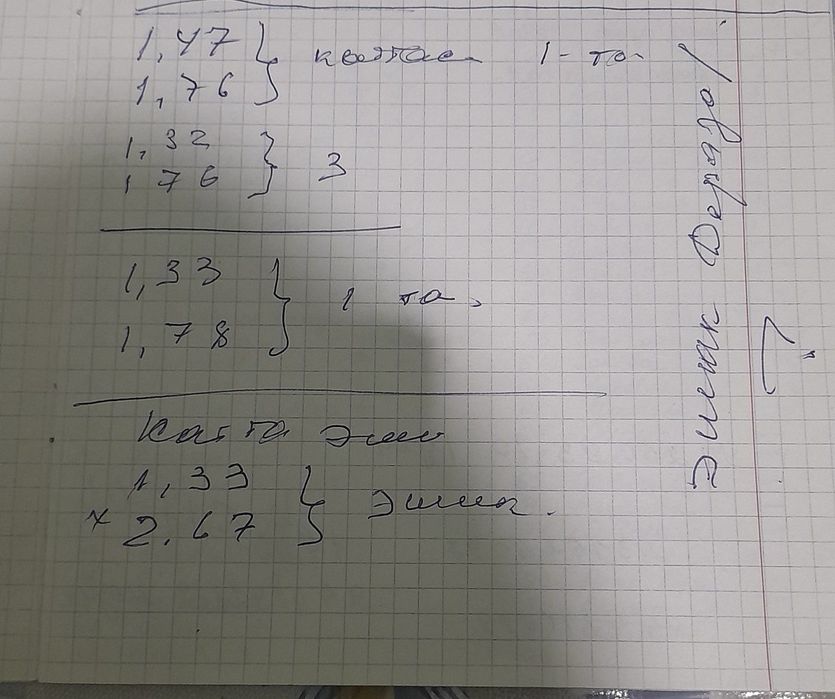 1,47
1,76 } каттаси 1-та
1,32
1 76 } 3
1,33
1,78 } 1 та,
Катта эши
1,33
× 2.67 } эшик.
Эшик Дераза!